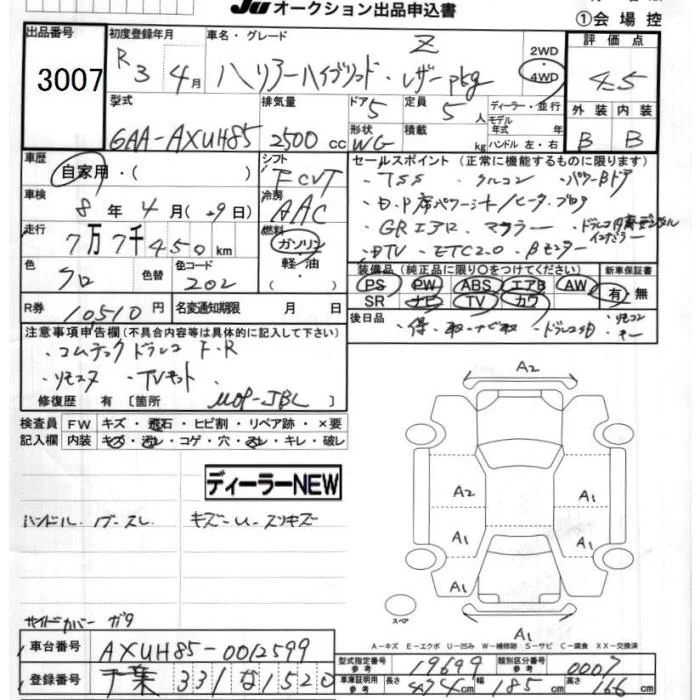 JU オークション出品申込書
①会場控
出品番号
3007
初度登録年月
R 3 4月
車名・グレード
Z
ハリアーハイブリッド・レザーpkg
2WD
4WD
評価点
4.5
型式
6AA-AXUH85
排気量
2500 cc
ドア 5
定員 5 人
形状 WG
積載 kg
ディーラー・並行
モデル年式 年
ハンドル 左・右
外装 内装
B B
車歴
自家用・( )
シフト
FCVT
車検
8年 4月(29日)
冷房
AAC
走行
7万7千450km
燃料
ガソリン
軽・油
( )
色
クロ
色替
色コード
202
セールスポイント(正常に機能するものに限ります)
・TSS ・クルコン ・パワーBドア
・D.P席パワーシート/ヒータ.
・GRエアロ マフラー
・DTV ・ETC2.0 ・Bモニター
装備品(純正品に限り○をつけてください)
PS PW ABS エアB AW
SR ナビ TV カワ
新車保証書
有・無
R券
10510円
名変通知期限 月 日
後日品
・保・取・ナビ取 ・リモコン
・キー
注意事項申告欄(不具合内容等は具体的に記入して下さい)
・コムテック ドラレコ F.R
・リモスタ ・TVキット
修復歴 有〔箇所 〕
MOP-JBL
検査員記入欄
FW キズ・飛石・ヒビ割・リペア跡・×要
内装 キズ・汚レ・コゲ・穴・スレ・キレ・破レ
ディーラーNEW
ハンドル
サイドカバー ガタ
A2
A2
A1
A1
A1
A1
A1
A1
スペア
A-キズ E-エクボ U-凹み W-補修跡 S-サビ C-腐食 XX-交換済
車台番号
AXUH85-0012599
登録番号
千葉 331 な 1520
型式指定番号 参考
19699
類別区分番号 参考
0007
車庫証明用 参考
長さ 474cm
幅 185cm
高さ 166cm